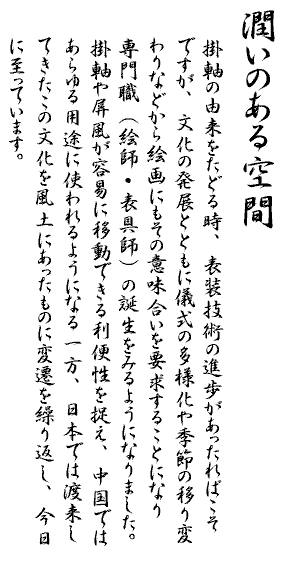 潤いのある空間
掛軸の由来をたどる時、表装技術の進歩があったればこそ
ですが、文化の発展とともに儀式の多様化や季節の移り変
わりなどから絵画にもその意味合いを要求することになり
専門職（絵師・表具師）の誕生をみるようになりました。
掛軸や屏風が容易に移動できる利便性を捉え、中国では
あらゆる用途に使われるようになる一方、日本では渡来し
てきたこの文化を風土にあったものに変遷を繰り返し、今日
に至っています。